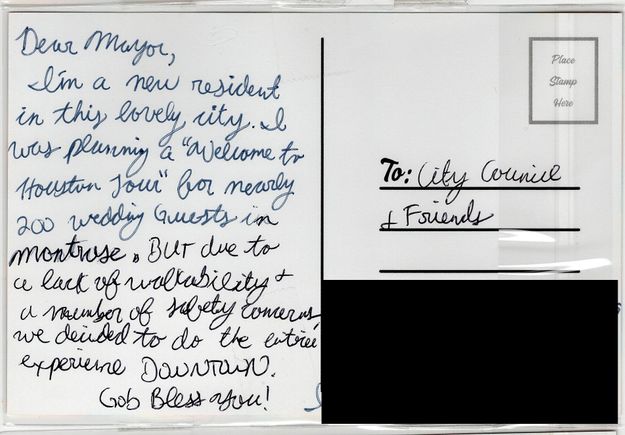 Dear Mayor,
I'm a new resident
in this lovely city. I
was planning a "Welcome to
Houston Tour" for nearly
200 wedding Guests in
montrose, BUT due to
a lack of walkability &
a number of safety concerns
we decided to do the entire
experience DOWNTOWN.
God Bless you!
Place
Stamp
Here
To: City Council
& Friends